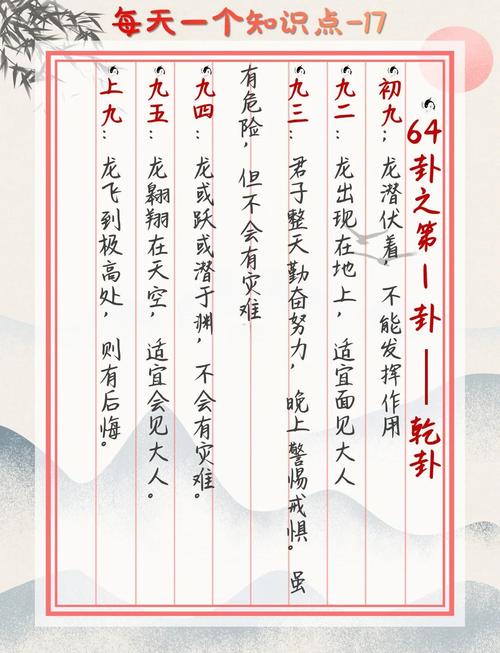 每天一个知识点-17
64卦之第一卦——乾卦
初九：龙潜伏着，不能发挥作用
九二：龙出现在地上，适宜面见大人
九三：君子整天勤奋努力，晚上警惕戒惧。虽
有危险，但不会有灾难
九四：龙或跃或潜于渊，不会有灾难。
九五：龙翱翔在天空，适宜会见大人。
上九：龙飞到极高处，则有后悔。